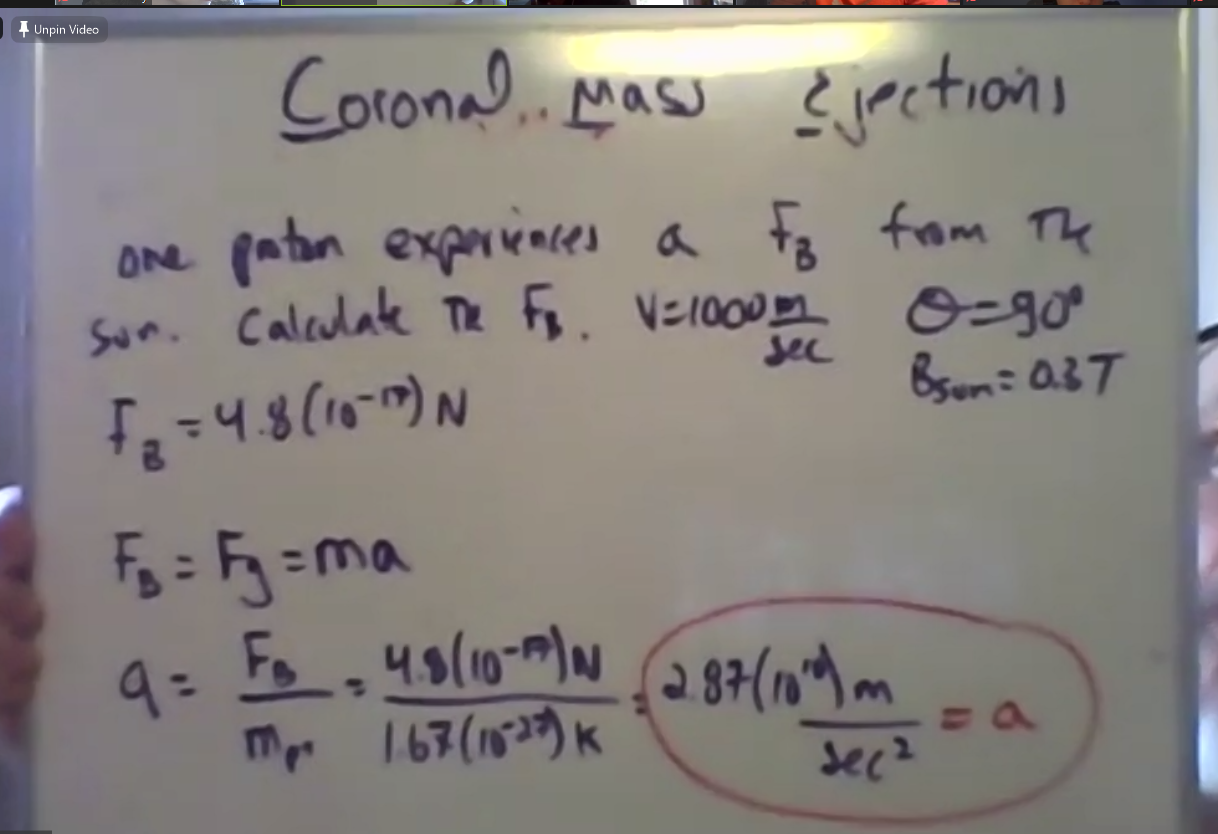 Unpin Video
Coronal Mass Ejections
one proton experiences a F_B from The
sun. Calculate The F_B. V=1000 m/sec θ=90°
B_sun = 0.3T
F_B = 4.8(10^-17) N
F_B = Fg = ma
a = F_B/m_p+ = 4.8(10^-17)N/1.67(10^-27)K = 2.87(10^10) m/sec² = a